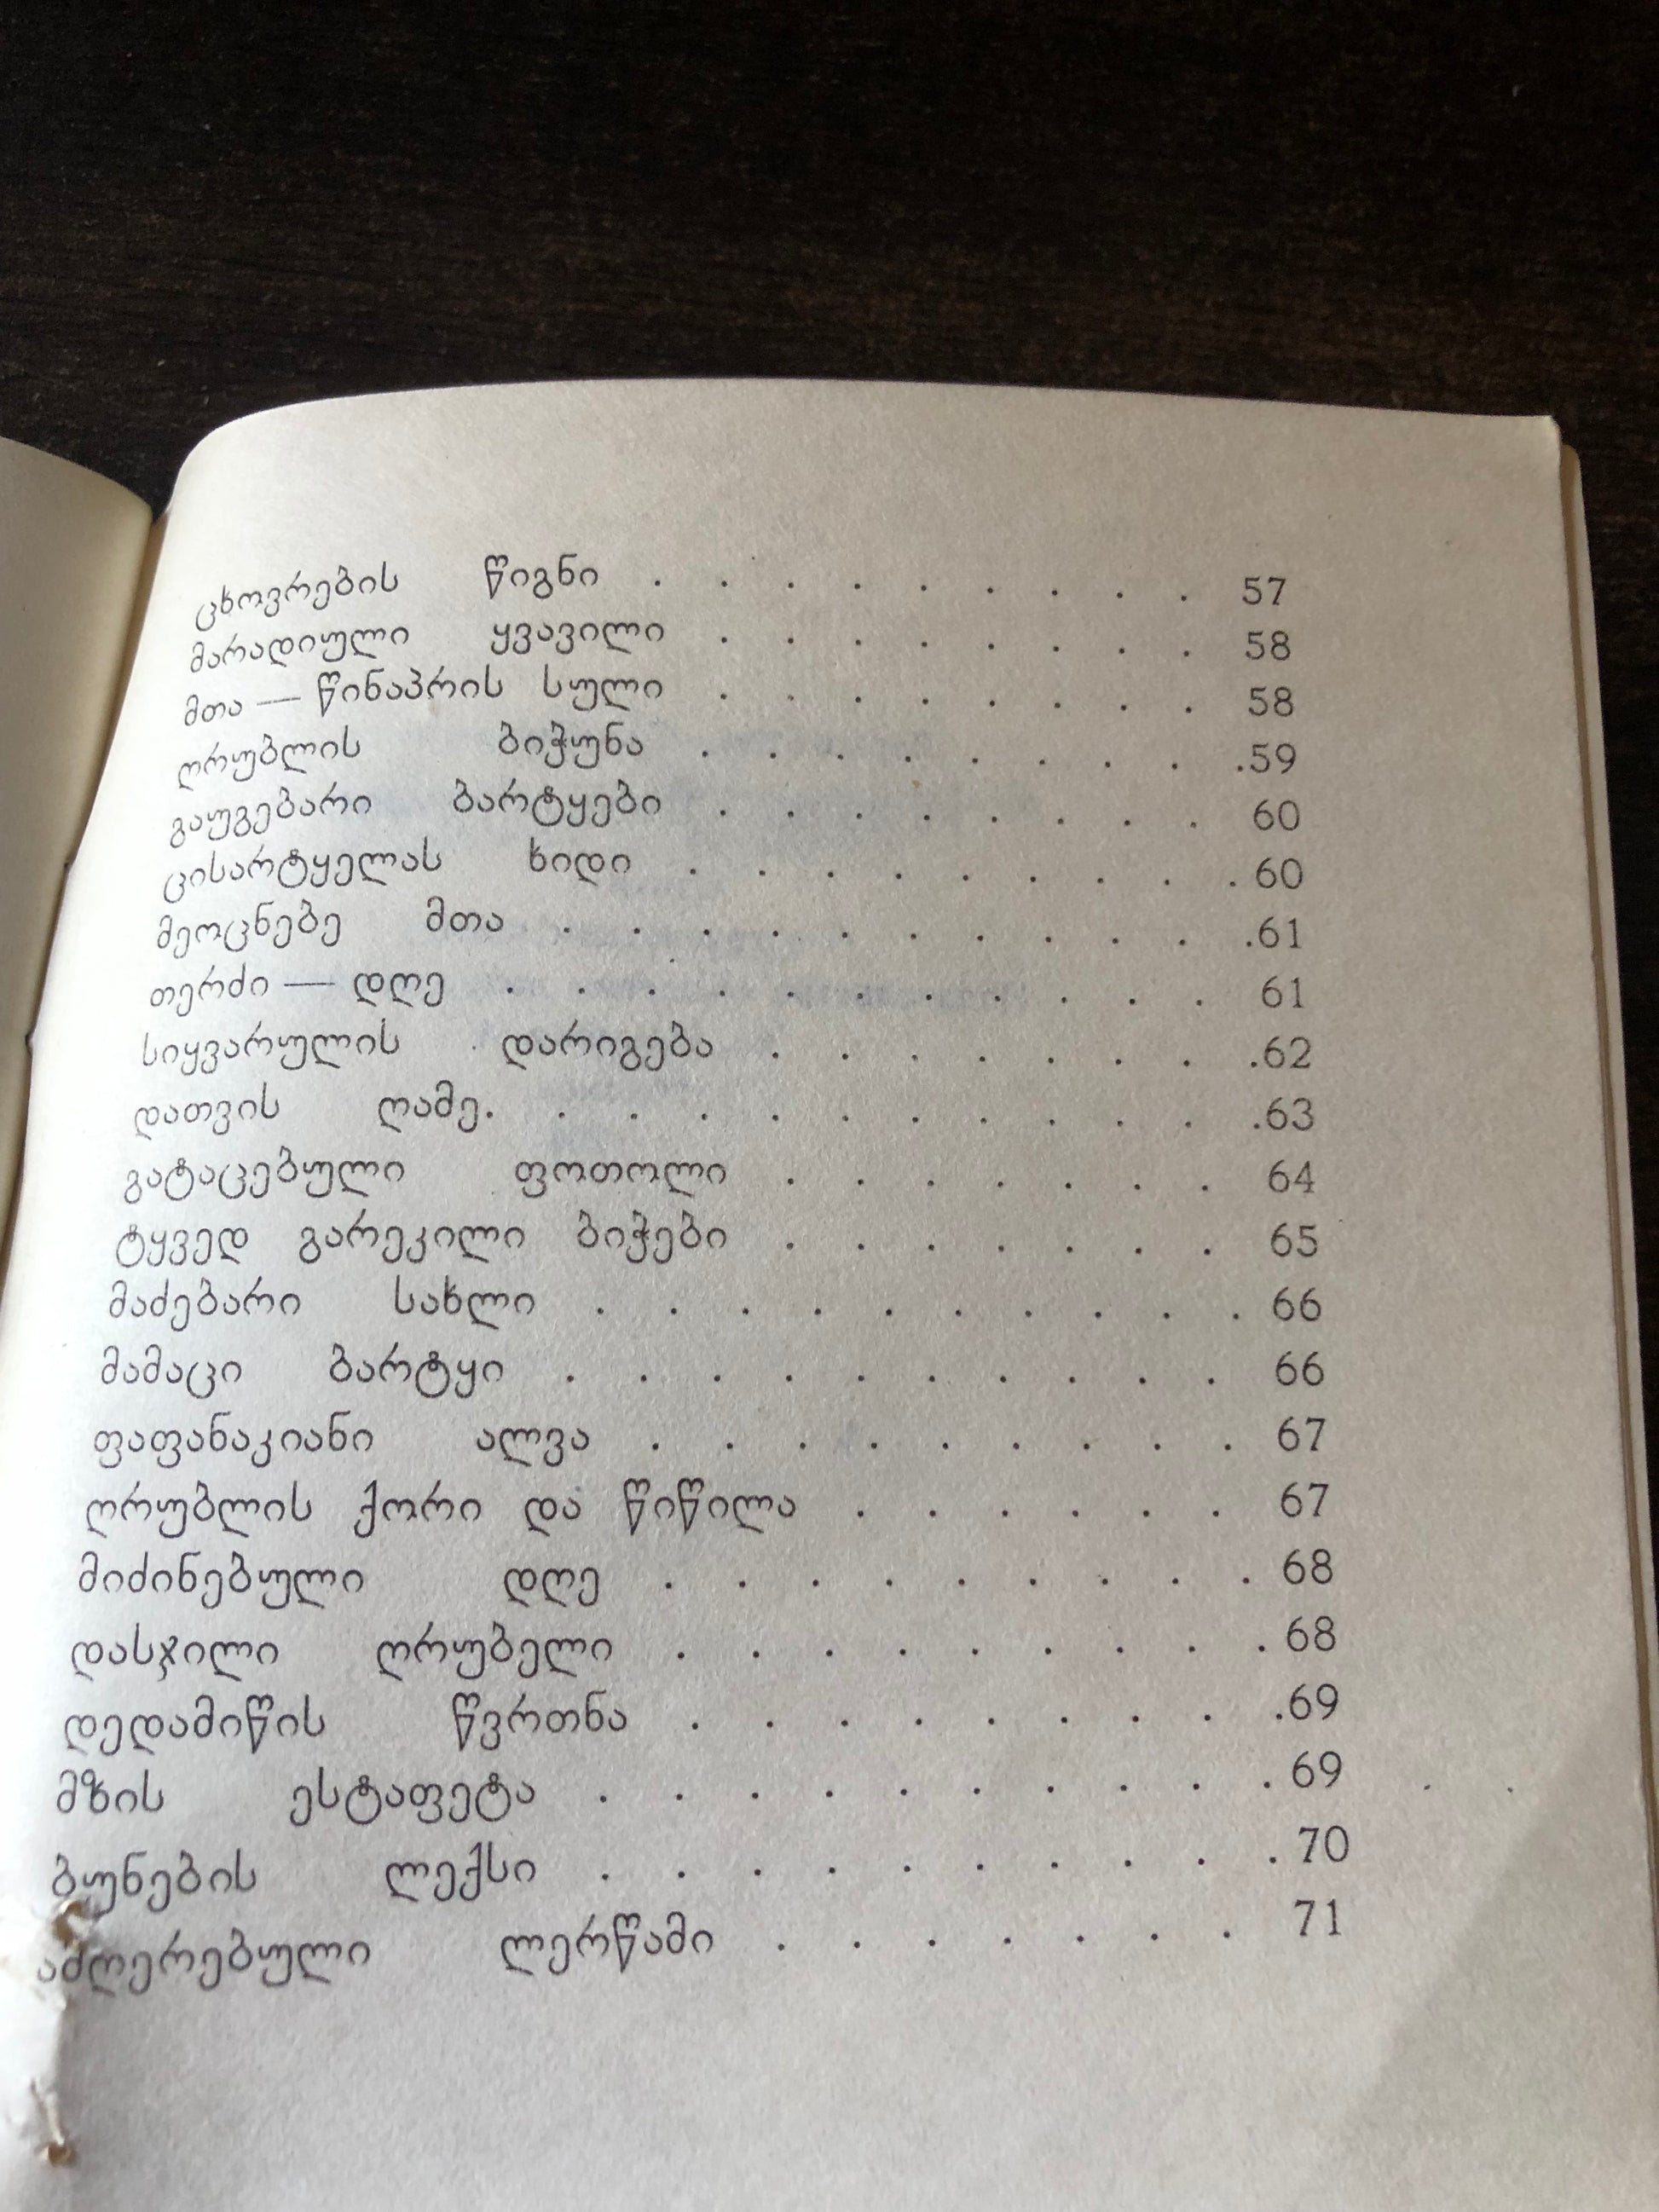 ცხოვრების წიგნი . . . . . . . . . 57
მარადიული ყვავილი . . . . . . . . 58
მთა — წინაპრის სული . . . . . . . . 58
ღრუბლის ბიჭუნა . . . . . . . . .59
გაუგებარი ბარტყები . . . . . . . . 60
ცისარტყელას ხიდი . . . . . . . . . 60
მეოცნებე მთა . . . . . . . . . . .61
თერძი — დღე . . . . . . . . . . . 61
სიყვარულის დარიგება . . . . . . . .62
დათვის ღამე. . . . . . . . . . . .63
გატაცებული ფოთოლი . . . . . . . 64
ტყვედ გარეკილი ბიჭები . . . . . . . 65
მაძებარი სახლი . . . . . . . . . . 66
მამაცი ბარტყი . . . . . . . . . . 66
ფაფანაკიანი ალვა . . . . . . . . . 67
ღრუბლის ქორი და წიწილა . . . . . . 67
მიძინებული დღე . . . . . . . . . 68
დასჯილი ღრუბელი . . . . . . . . . 68
დედამიწის წვრთნა . . . . . . . . .69
მზის ესტაფეტა . . . . . . . . . . 69
ბუნების ლექსი . . . . . . . . . . 70
აძღერებული ლერწამი . . . . . . . 71